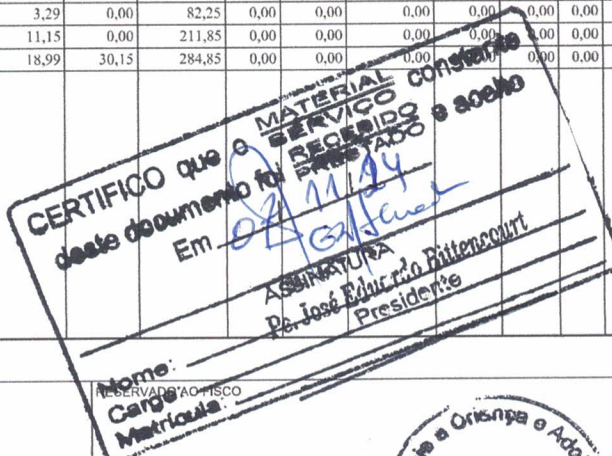 3,29 0,00 82,25 0,00 0,00 0,00 0,00 0,00 0,00 0,00
11,15 0,00 211,85 0,00 0,00 0,00 0,00 0,00 0,00 0,00
18,99 30,15 284,85 0,00 0,00 0,00 0,00 0,00 0,00 0,00
CERTIFICO que o MATERIAL SERVIÇO constante
deste documento foi RECEBIDO PRESTADO e aceito
Em 11/24
ASSINATURA
Pe. José Eduardo Bittencourt
Presidente
Nome:
Cargo
Matrícula:
RESERVADO AO FISCO
a Criança e Ado